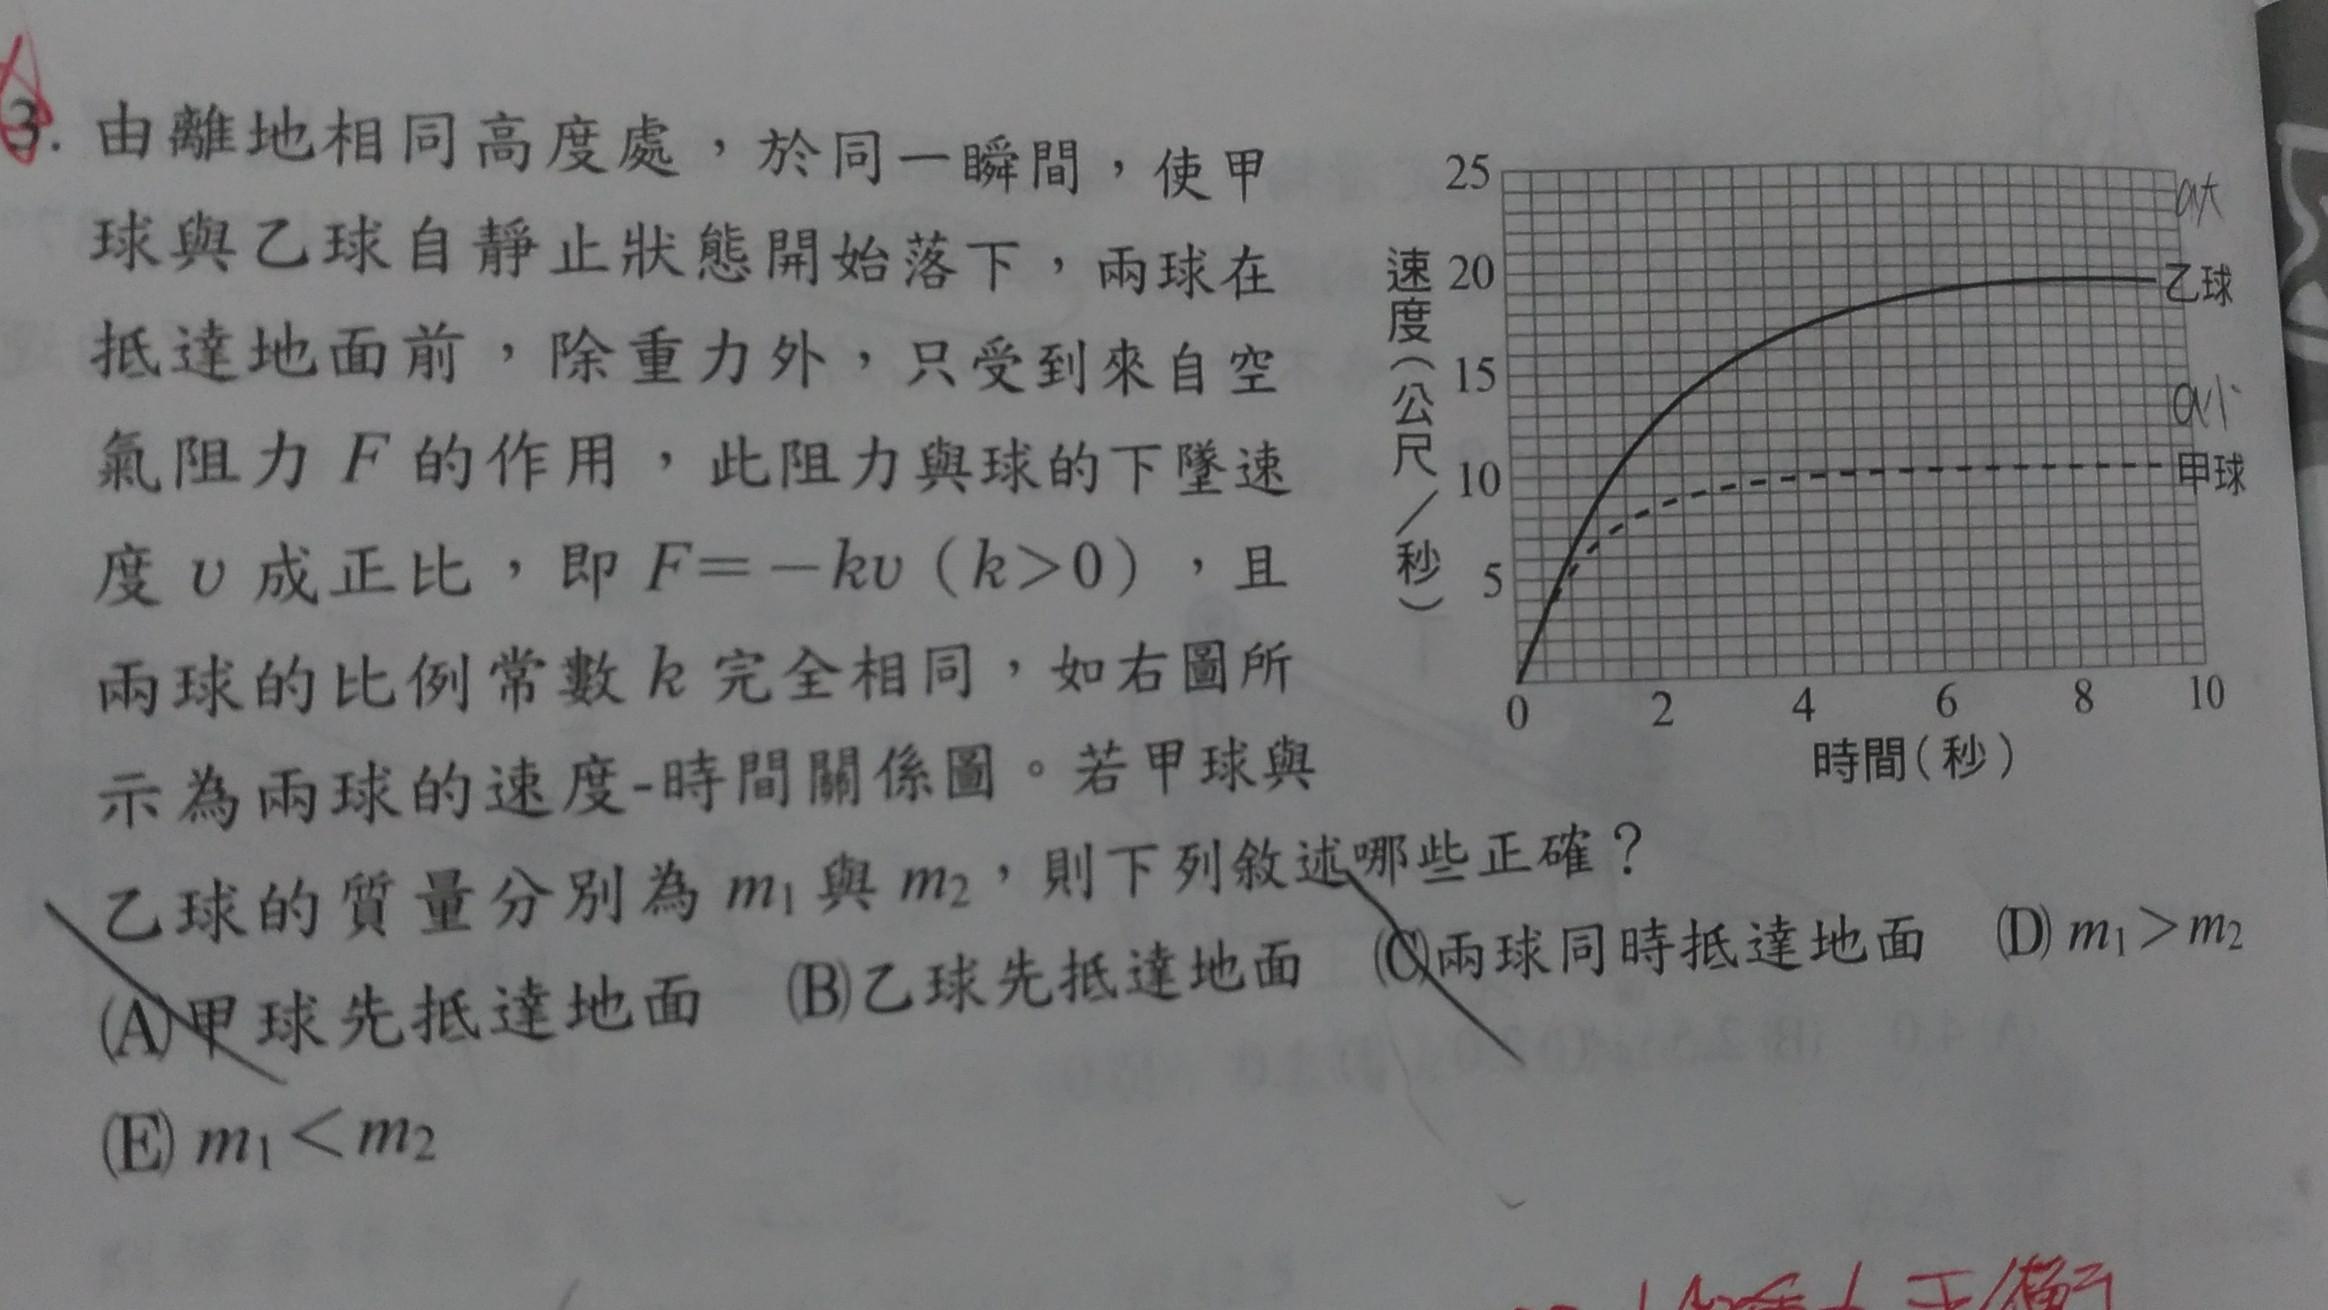 3. 由離地相同高度處，於同一瞬間，使甲
球與乙球自靜止狀態開始落下，兩球在
抵達地面前，除重力外，只受到來自空
氣阻力 F 的作用，此阻力與球的下墜速
度 υ 成正比，即 F＝－kυ（k＞0），且
兩球的比例常數 k 完全相同，如右圖所
示為兩球的速度-時間關係圖。若甲球與
乙球的質量分別為 m₁ 與 m₂，則下列敘述哪些正確？
(A)甲球先抵達地面 (B)乙球先抵達地面 (C)兩球同時抵達地面 (D) m₁＞m₂
(E) m₁＜m₂
速度（公尺／秒）
25
20
15
10
5
0 2 4 6 8 10
時間(秒)
a大
乙球
a小
甲球